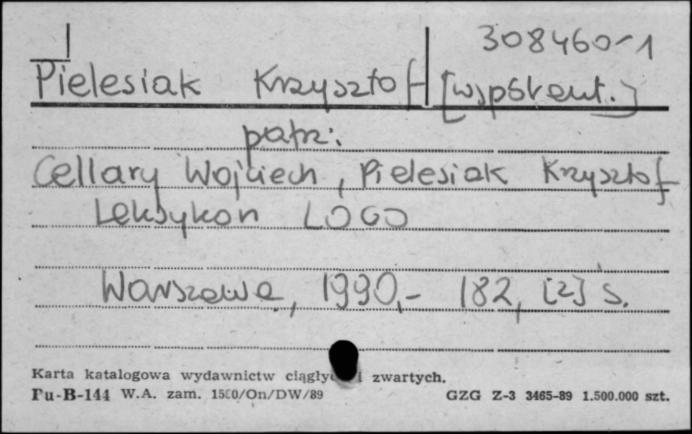 308460-1
Pielesiak Krzysztof [współaut.]
patrz:
Cellary Wojciech, Pielesiak Krzysztof
Leksykon LOGO
Warszawa, 1990,- 182, [2] s.
Karta katalogowa wydawnictw ciągłych i zwartych.
Pu-B-144 W.A. zam. 1500/On/DW/89 GZG Z-3 3465-89 1.500.000 szt.